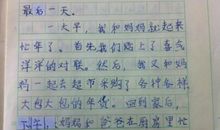 最后一天。
一大早，我和妈妈就起来
忙年了。首先我们贴上了喜气
洋洋的对联。然后，我又和妈
妈一起去超市采购了各种各样
大包大包的年货。回到家后，
下午，妈妈和爸爸在厨房里忙